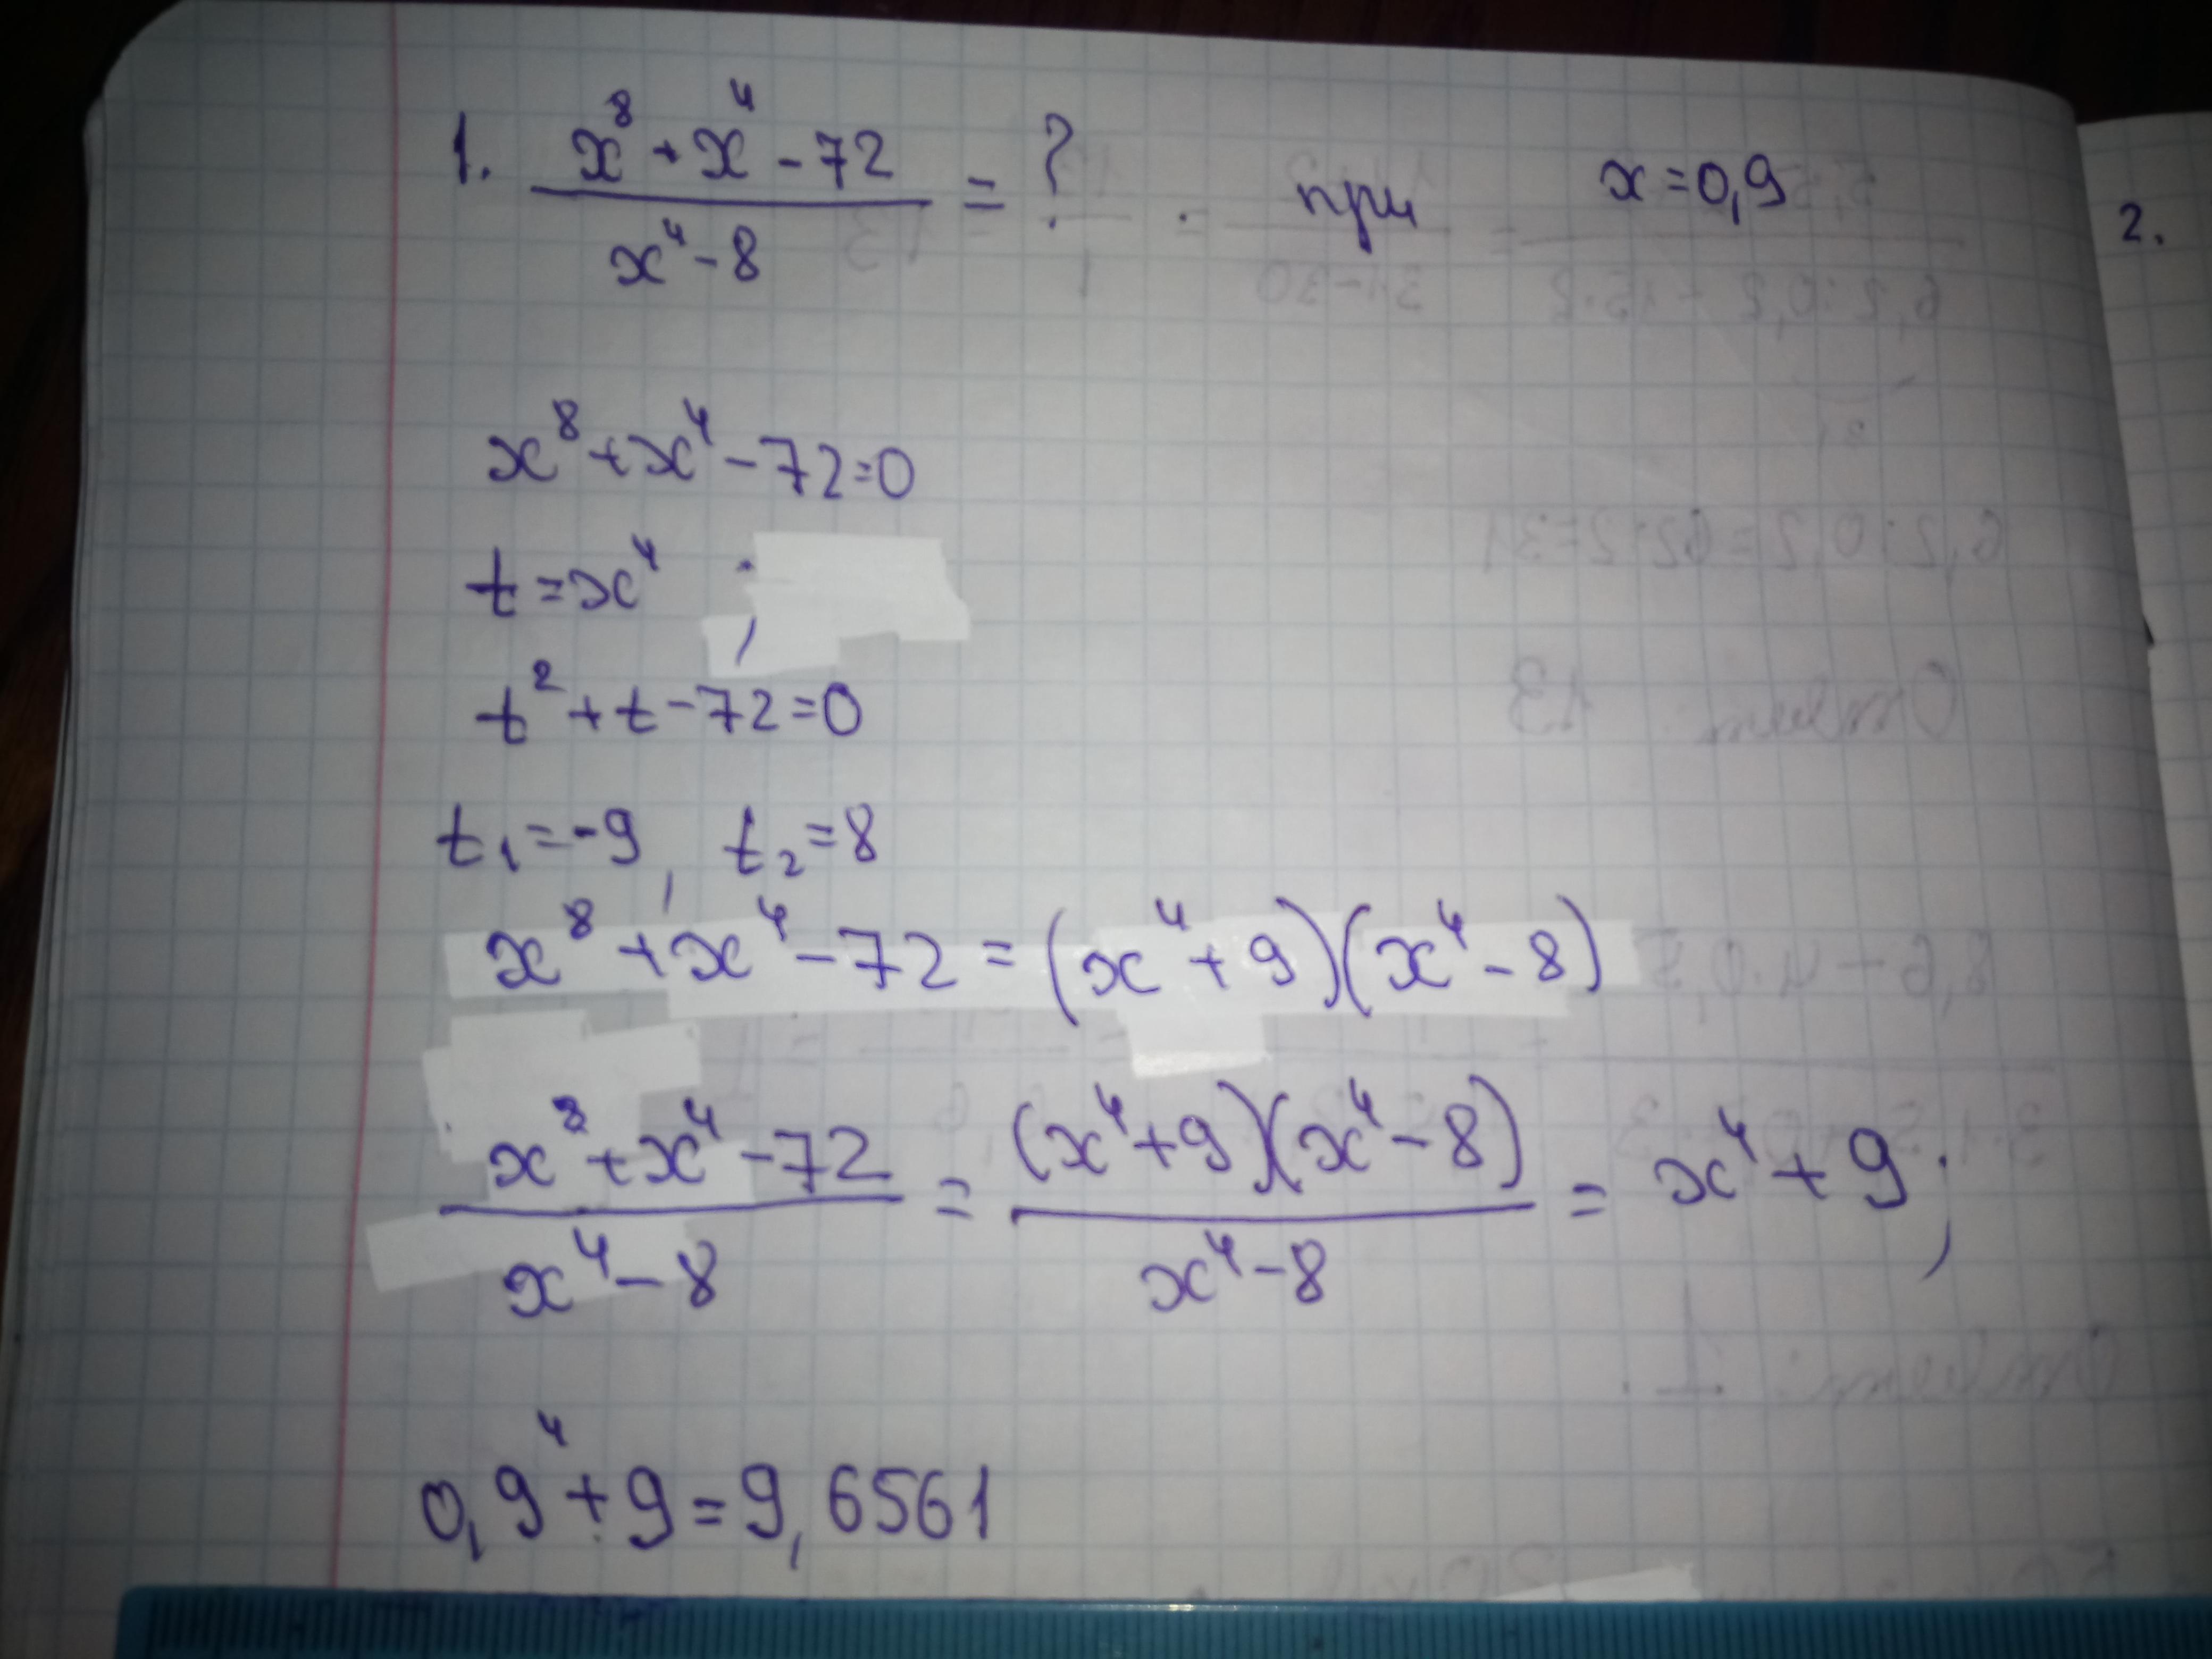 1. (x⁸ + x⁴ - 72)/(x⁴ - 8) = ? при x = 0,9
2.
x⁸ + x⁴ - 72 = 0
t = x⁴ ;
t² + t - 72 = 0
t₁ = -9, t₂ = 8
x⁸ + x⁴ - 72 = (x⁴ + 9)(x⁴ - 8)
(x⁸ + x⁴ - 72)/(x⁴ - 8) = ((x⁴ + 9)(x⁴ - 8))/(x⁴ - 8) = x⁴ + 9;
0,9⁴ + 9 = 9,6561